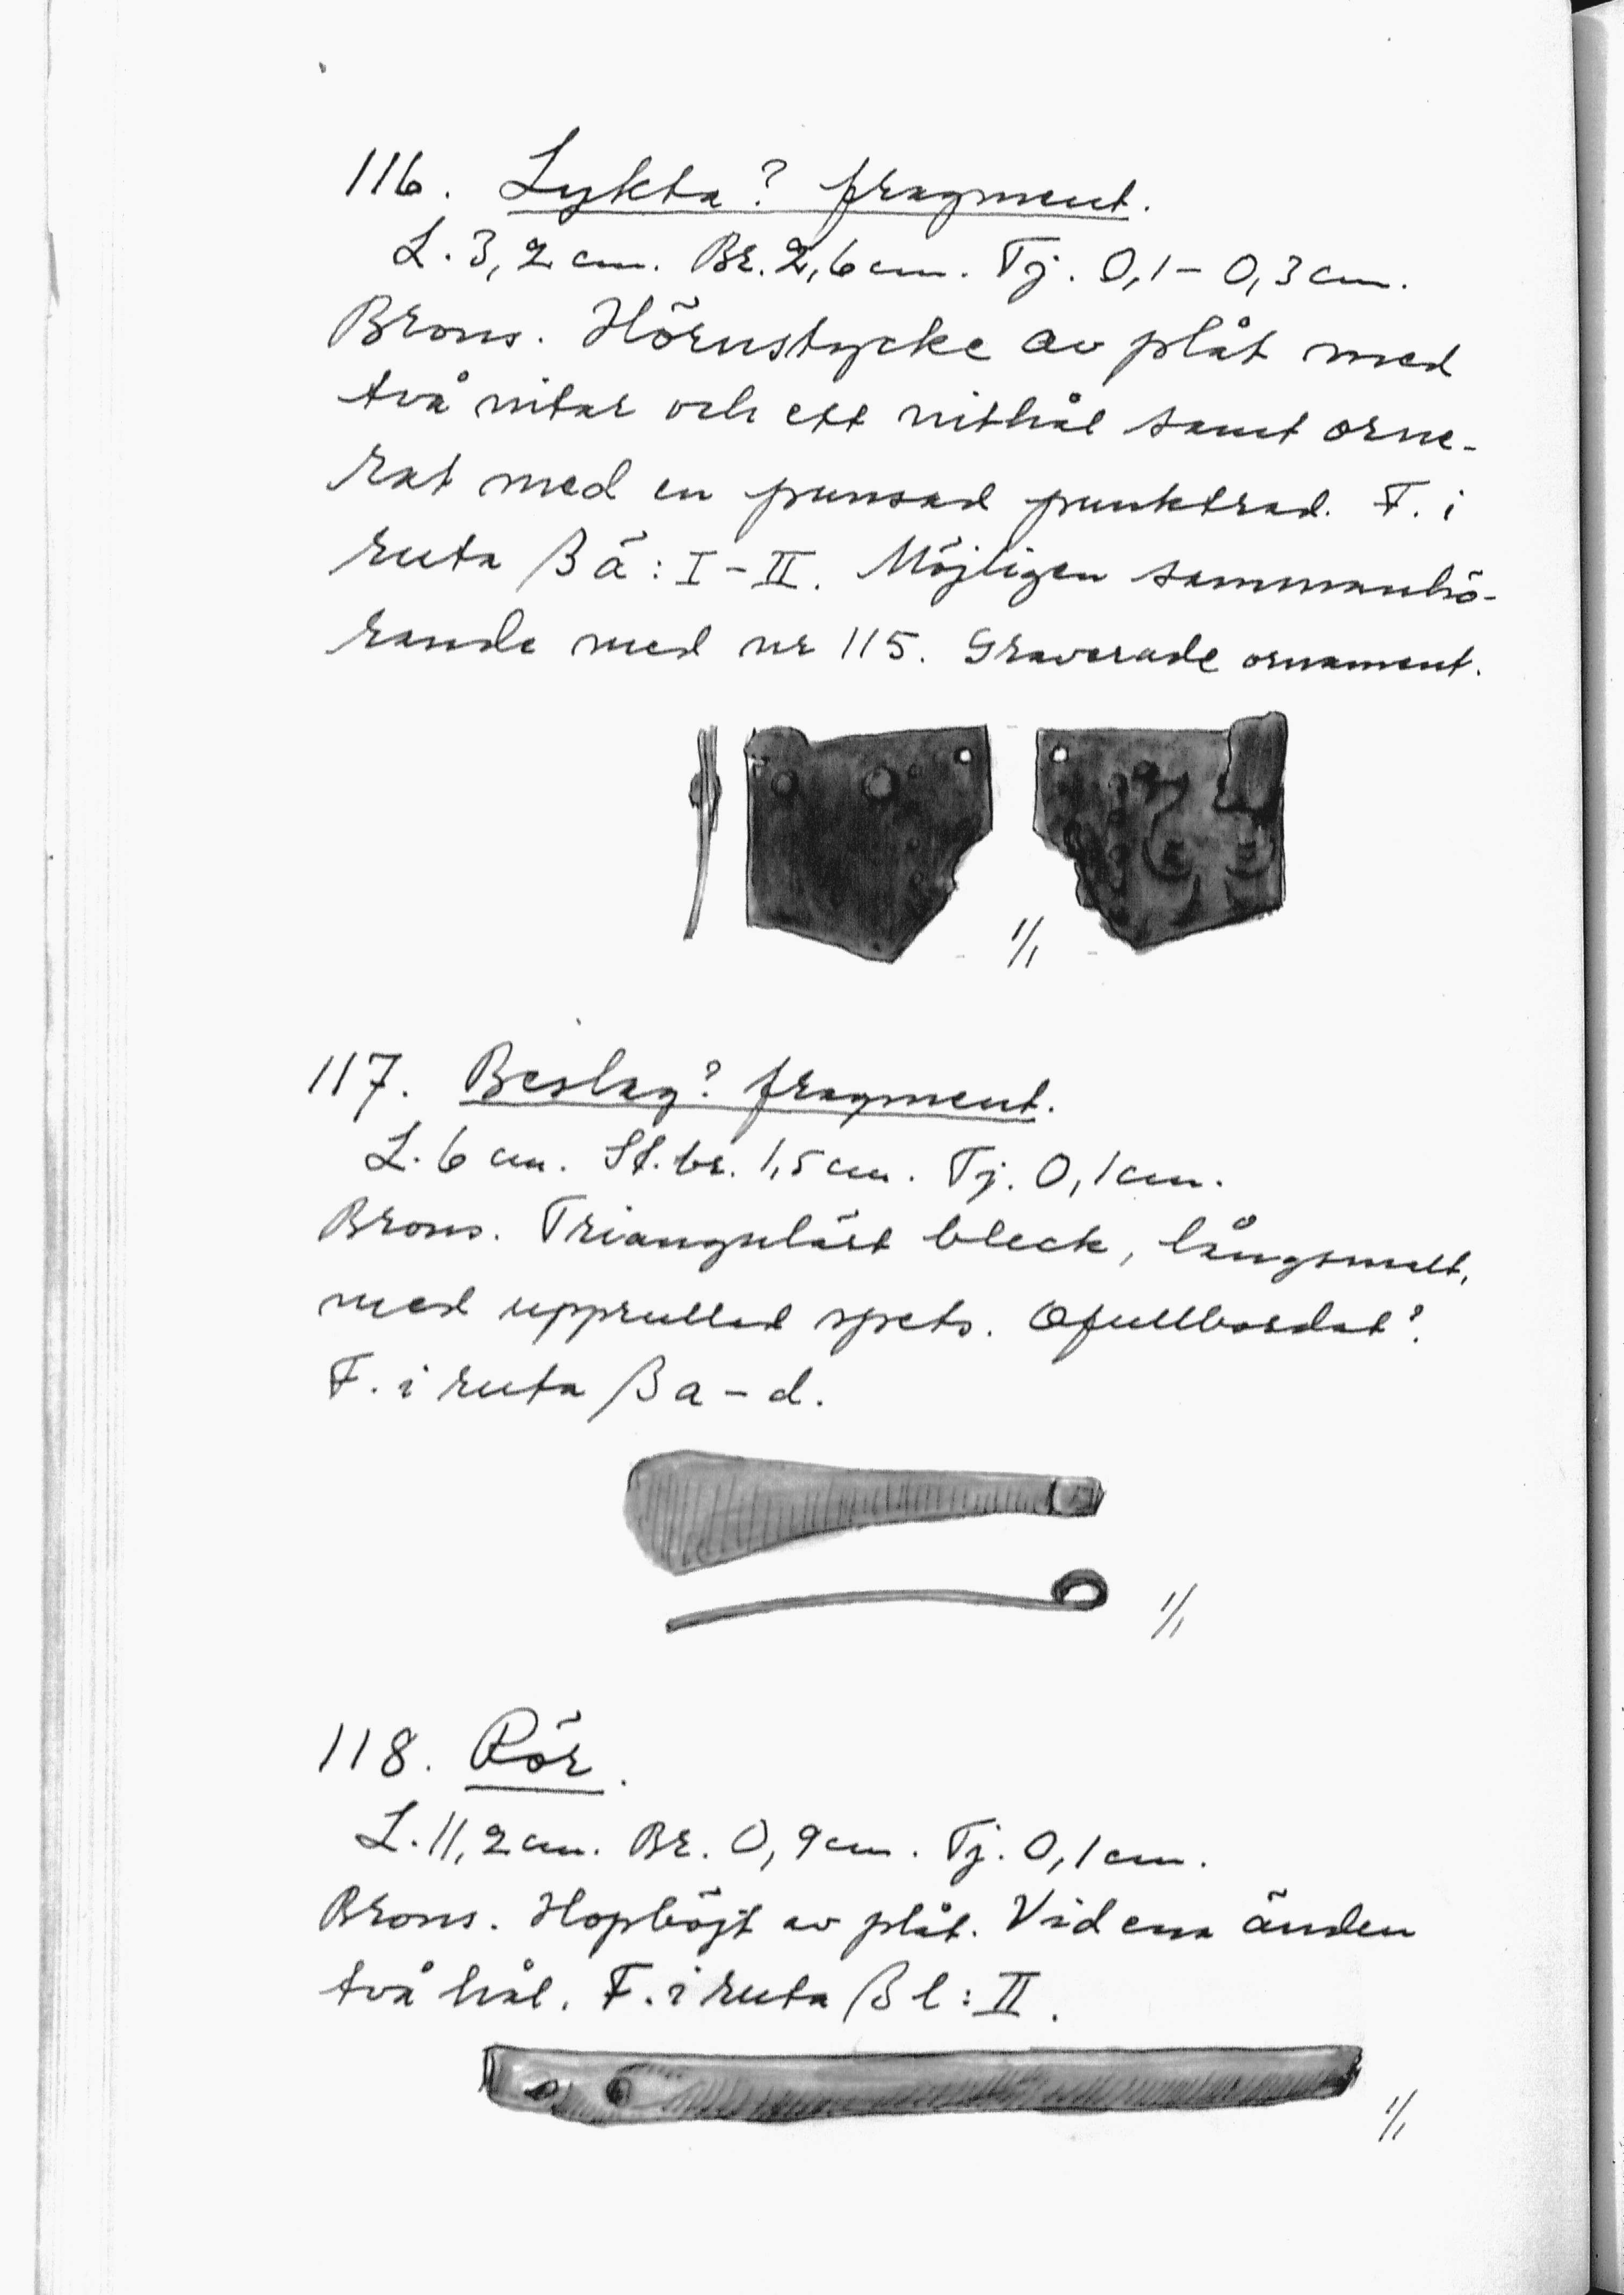 116. Lykta? fragment.
L. 3,2 cm. Br. 2,6 cm. Tj. 0,1 – 0,3 cm.
Brons. Hörnstycke av plåt med
två nitar och ett nithål samt orne-
rat med en punsad punktrad. F. i
ruta β ä : I – II. Möjligen sammanhö-
rande med nr 115. Graverade ornament.
1/1
117. Beslag? fragment.
L. 6 cm. St. br. 1,5 cm. Tj. 0,1 cm.
Brons. Triangulärt bleck, långsmalt,
med upprullad spets. Ofullbordat?
F. i ruta β a – d.
1/1
118. Rör.
L. 11,2 cm. Br. 0,9 cm. Tj. 0,1 cm.
Brons. Hopböjt av plåt. Vid ena änden
två hål. F. i ruta β l : II.
1/1